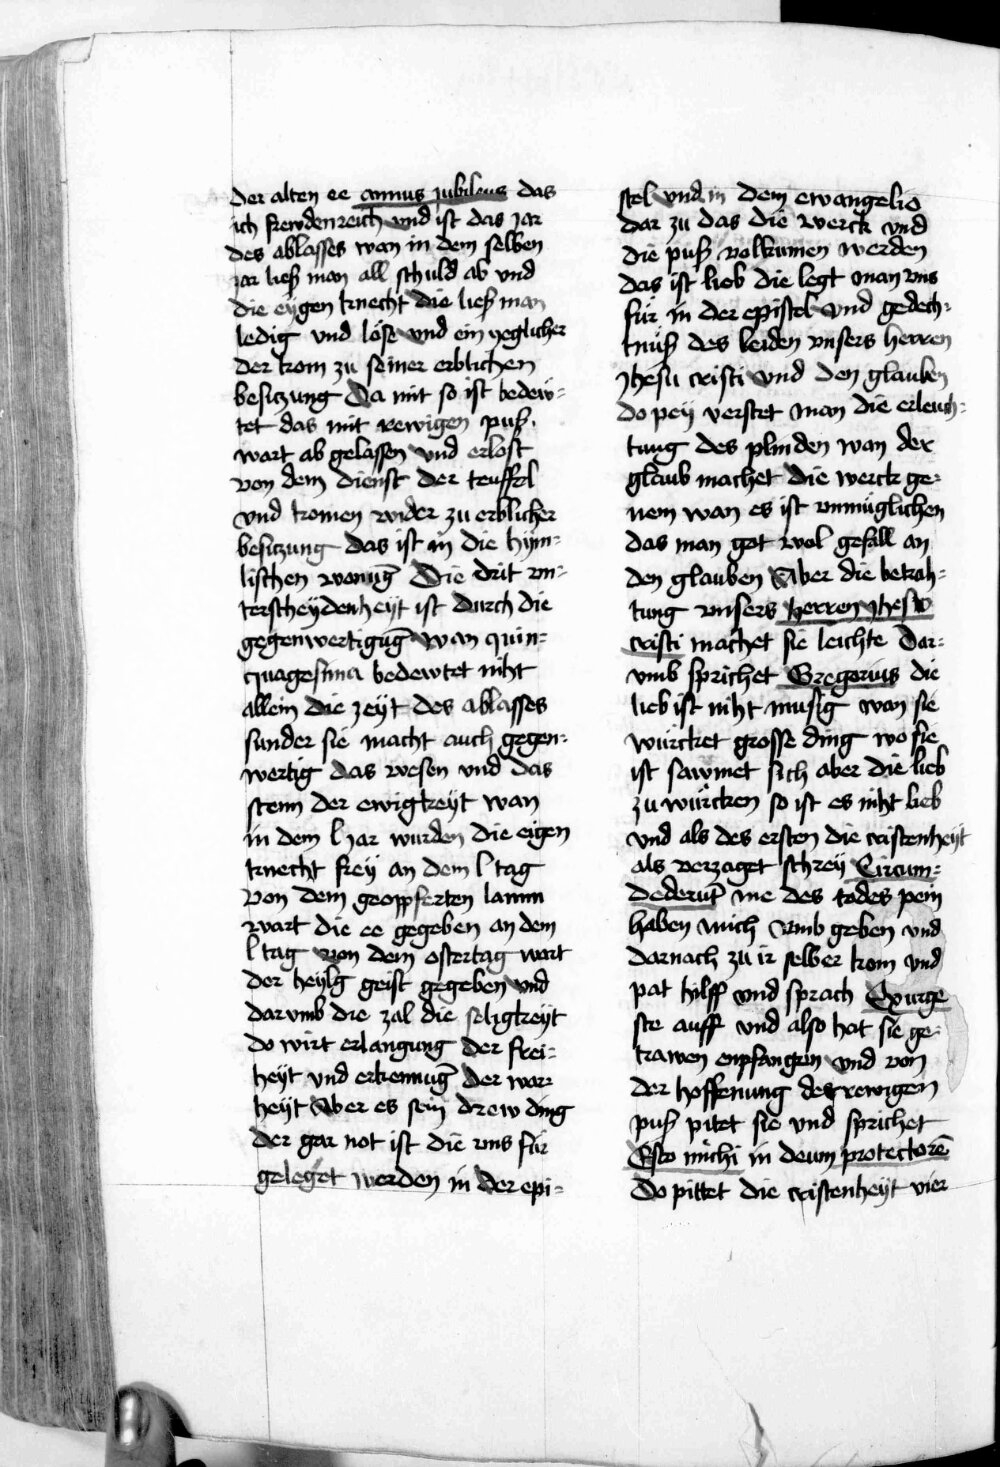 der alten ee annus jubileus das
ich frewdenreich vnd ist das jar
des ablasses wan in dem selben
jar ließ man all schuld ab vnd
die eygen knecht die ließ man
ledig vnd löse vnd ein yeglicher
der kom zu seiner erblichen
besiczung Da mit so ist bedew-
tet das mit rewigen puß
wart ab gelassen vnd erlost
von dem dienst der teuffel
vnd komen wider zu erblicher
besiczung das ist in die hym-
lischen wonug̃ Die drit vn-
terscheydenheyt ist durch die
gegenwertigug̃ wan quin-
quagesima bedewtet niht
allein die zeyt des ablasses
sunder sie macht auch gegen-
wertig das wesen vnd das
stenn der ewigkeyt wan
in dem l jar wurden die eigen
knecht frey an dem l tag
von dem geopferten lamm
wart die ee gegeben an dem
l tag von dem ostertag wart
der heylg geist gegeben vnd
dar vmb die zal die seligkeyt
do wirt erlangung der frei-
heyt vnd erkennug̃ der war
heyt Aber es sein drew ding
der gar not ist die vns für
geleget werden in der epi-
stel vnd in dem ewangelio
dar zu das die werck vnd
die puß volkumen werden
das ist lieb die legt man vns
für in der epistel vnd gedech-
tnüß des leiden vnsers herren
Jhesu cristi vnd den glauben
do pey verstet man die erleuch-
tung des plinden wan der
glaub machet die werck ge-
nem wan es ist vnmüglichen
das man got wol gefall an
den glauben Aber die betrah-
tung vnsers herren Jhesu
cristi machet sie leichte Dar-
vmb sprichet Gregorius die
lieb ist niht musig wan sie
würcket grosse ding wo sie
ist sawmet sich aber die lieb
zu würcken so ist es niht lieb
vnd als des ersten die cristenheyt
als verzaget schrey Circum-
dederut̃ me des todes pein
haben mich vmb geben vnd
darnach zu ir selber kom vnd
pat hilff vnd sprach Exurge
ste auff vnd also hat sie ge-
trawen enpfangen vnd von
der hoffenung der rewigen
puß pitet sie vnd sprichet
Esto michi in deum protectorẽ
Do pittet die cristenheyt vier